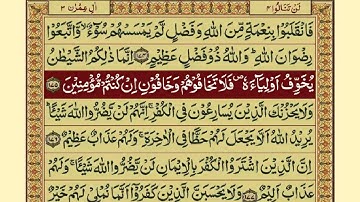 لن تنالوا ۴
اٰل عمرٰن ۳
فَانْقَلَبُوْا بِنِعْمَةٍ مِّنَ اللّٰهِ وَفَضْلٍ لَّمْ یَمْسَسْهُمْ سُوْٓءٌ ۙ وَّاتَّبَعُوْا
رِضْوَانَ اللّٰهِ ؕ وَاللّٰهُ ذُوْ فَضْلٍ عَظِیْمٍ ﴿۱۷۴﴾ اِنَّمَا ذٰلِكُمُ الشَّیْطٰنُ
یُخَوِّفُ اَوْلِیَآءَهٗ ۪ فَلَا تَخَافُوْهُمْ وَخَافُوْنِ اِنْ كُنْتُمْ مُّؤْمِنِیْنَ ﴿۱۷۵﴾
وَلَا یَحْزُنْكَ الَّذِیْنَ یُسَارِعُوْنَ فِی الْكُفْرِ ۚ اِنَّهُمْ لَنْ یَّضُرُّوا اللّٰهَ شَیْـًٔا ؕ
یُرِیْدُ اللّٰهُ اَلَّا یَجْعَلَ لَهُمْ حَظًّا فِی الْاٰخِرَةِ ۚ وَلَهُمْ عَذَابٌ عَظِیْمٌ ﴿۱۷۶﴾
اِنَّ الَّذِیْنَ اشْتَرَوُا الْكُفْرَ بِالْاِیْمَانِ لَنْ یَّضُرُّوا اللّٰهَ شَیْـًٔا ۚ وَلَهُمْ
عَذَابٌ اَلِیْمٌ ﴿۱۷۷﴾ وَلَا یَحْسَبَنَّ الَّذِیْنَ كَفَرُوْۤا اَنَّمَا نُمْلِیْ لَهُمْ خَیْرٌ